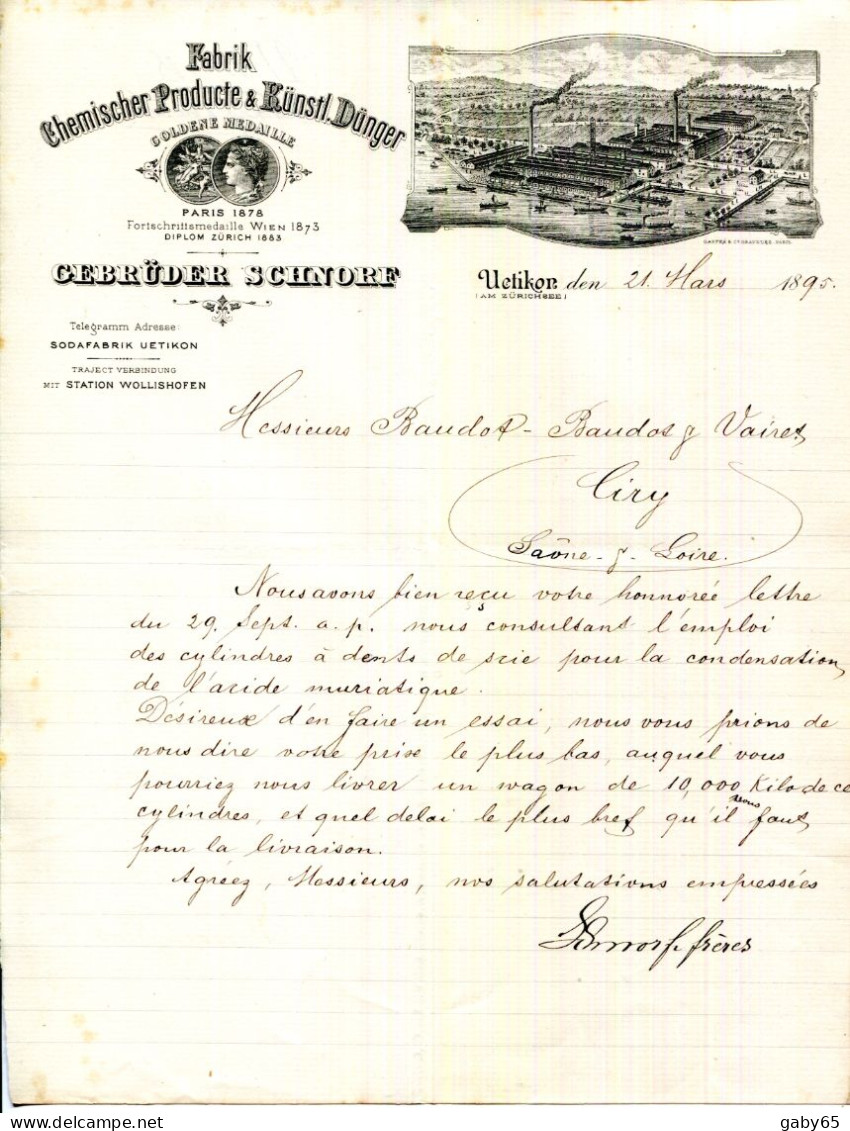 Fabrik
Chemischer Producte & Künstl. Dünger
GOLDENE MEDAILLE
PARIS 1878
Fortschrittsmedaille WIEN 1873
DIPLOM ZÜRICH 1883
GEBRÜDER SCHNORF
Telegramm Adresse:
SODAFABRIK UETIKON
TRAJECT VERBINDUNG
MIT STATION WOLLISHOFEN
Uetikon den 21. Mars 1895.
(AM ZÜRICHSEE)
Messieurs Baudot - Baudot & Vairet
Ciry
Saône - & - Loire.
Nous avons bien reçu votre honnorée lettre
du 29. Sept. a. p. nous consultant l'emploi
des cylindres à dents de scie pour la condensation
de l'acide muriatique.
Désireux d'en faire un essai, nous vous prions de
nous dire votre prix le plus bas, auquel vous
pourriez nous livrer un wagon de 10,000 Kilo de ce
cylindres, et quel delai le plus bref qu'il vous faut
pour la livraison.
Agréez, Messieurs, nos salutations empressées
Schnorf frères
delcampe.net
gaby65